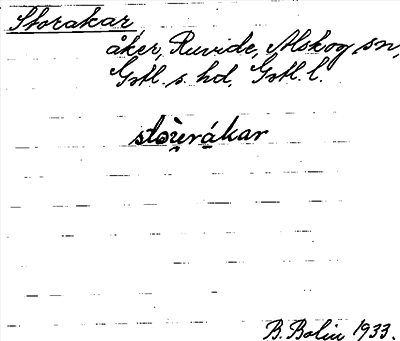 Storakar
åker, Ruvide, Alskog sn,
Gotl. s. hd, Gotl. l.
stòu̯rákar
B. Bolin 1933.